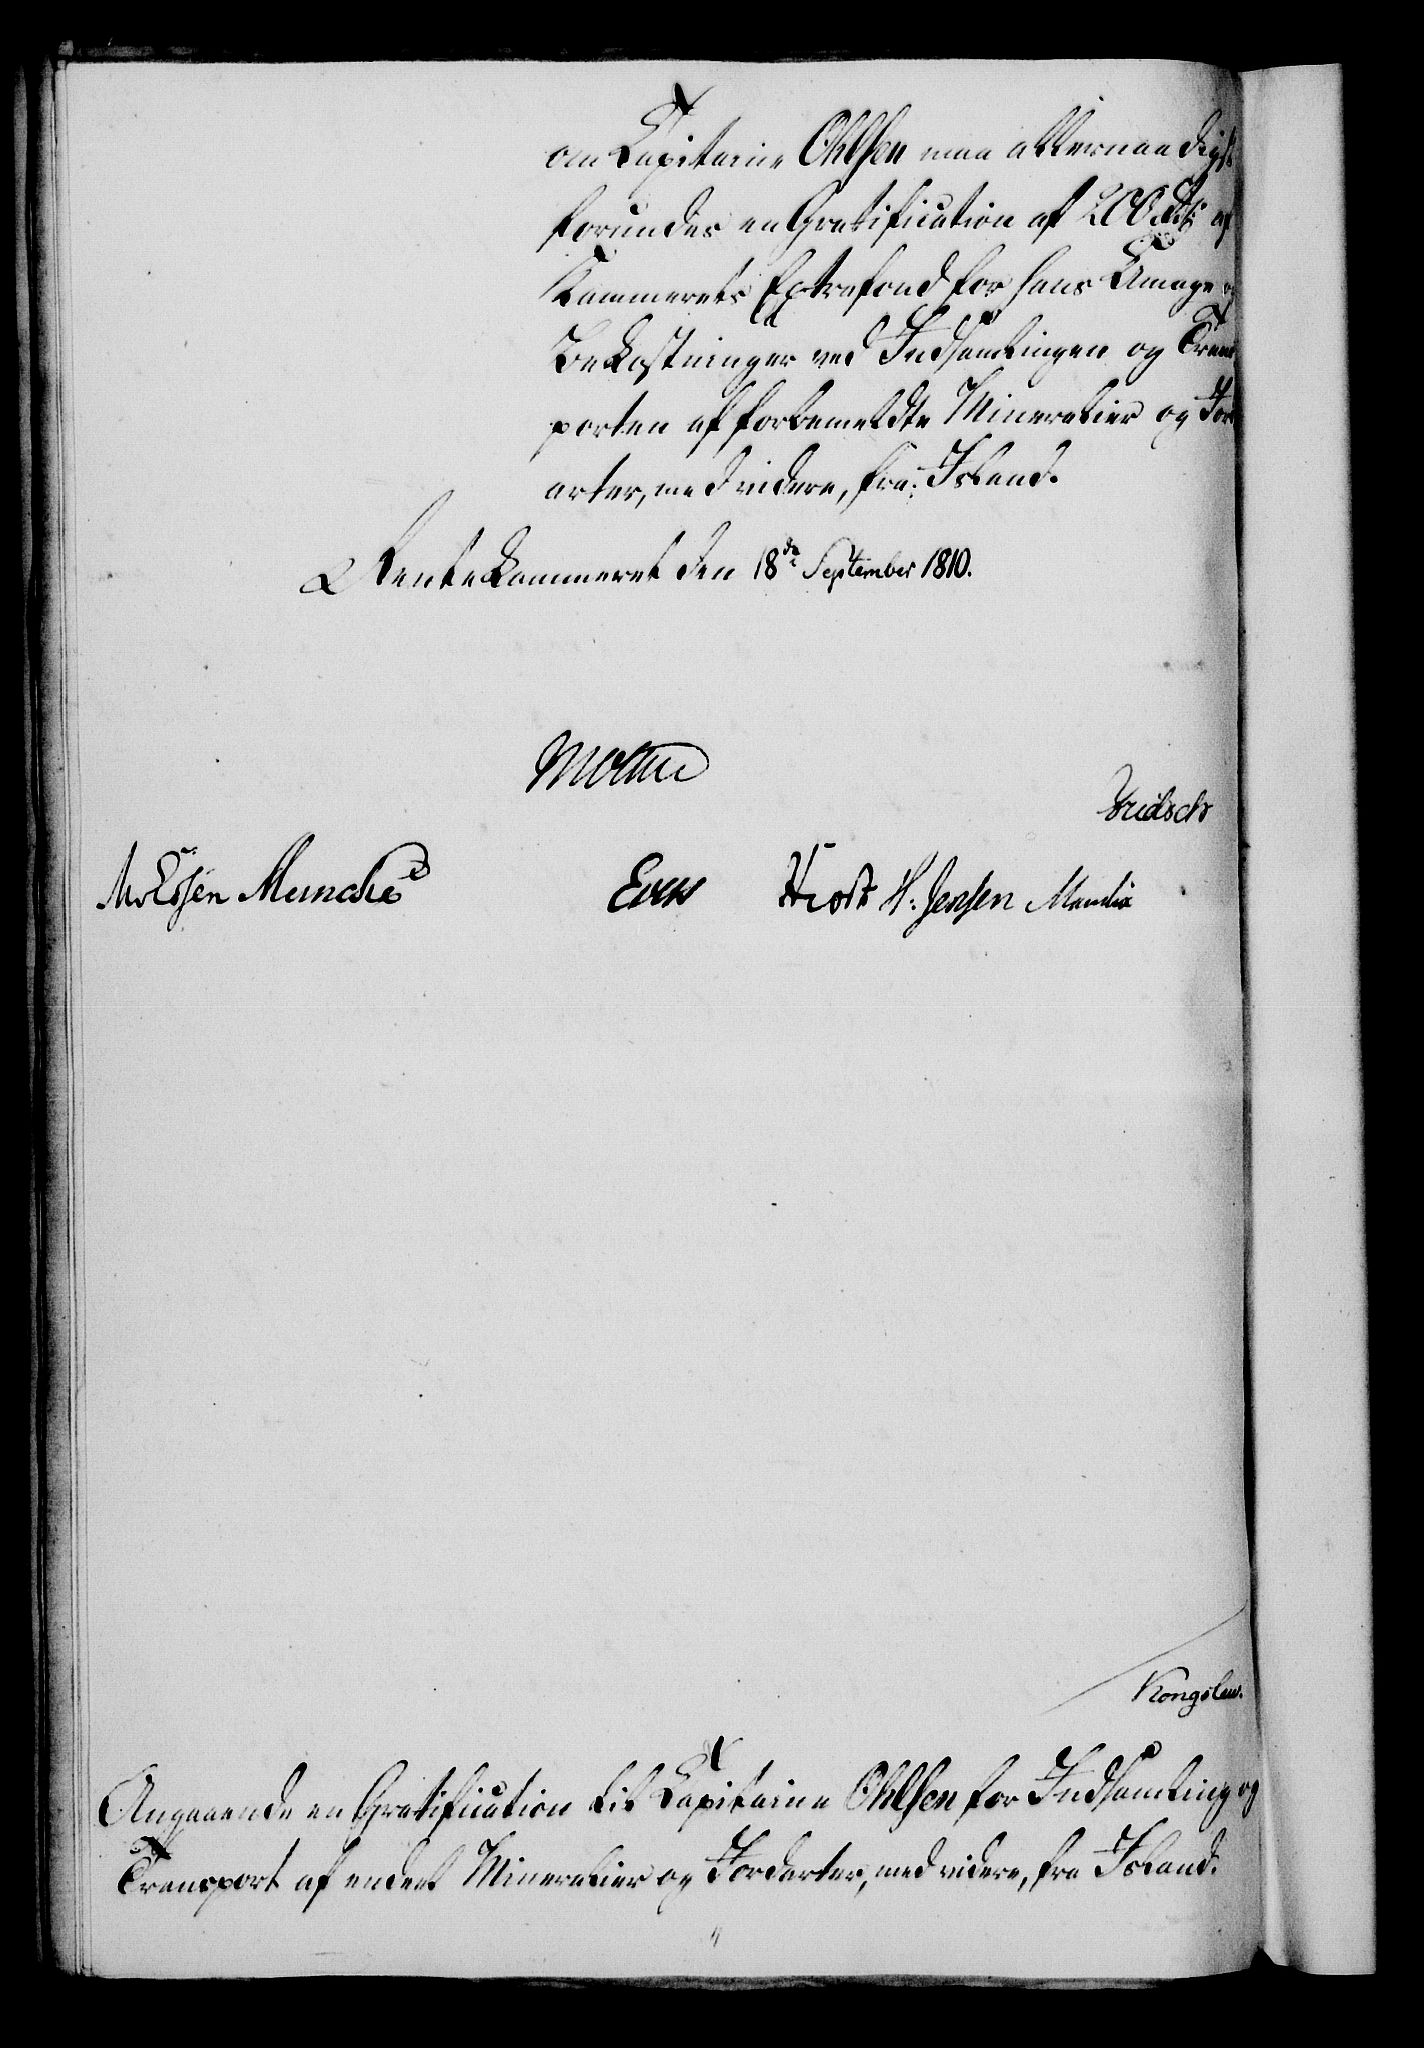 om Capitaine Ohlsen maa allernaadigst
forundes en Gratification af 200 Rdlr af
Kammerets Extrafond for hans Umage og
Bekostninger ved Indsamlingen og Trans
porten af forbemeldte Mineralier og Jord
arter, med videre, fra Island.
Rentekammeret den 18de September 1810.
Møltue
Fridsch
Munche
H. Jensen
Kongslew.
Angaaende en Gratification til Capitaine Ohlsen for Indsamling og
Transport af endeel Mineralier og Jordarter, med videre, fra Island.